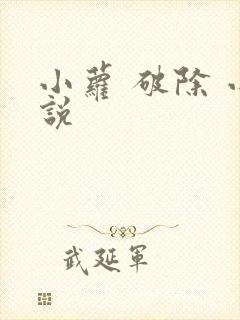 小蘿 破除
說
武延軍